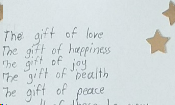 The gift of love
The gift of happiness
The gift of joy
The gift of health
The gift of peace